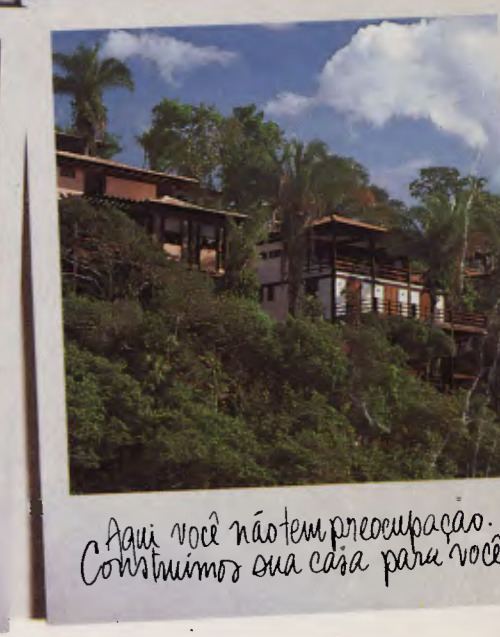 Aqui você não tem preocupação.
Construimos sua casa para você